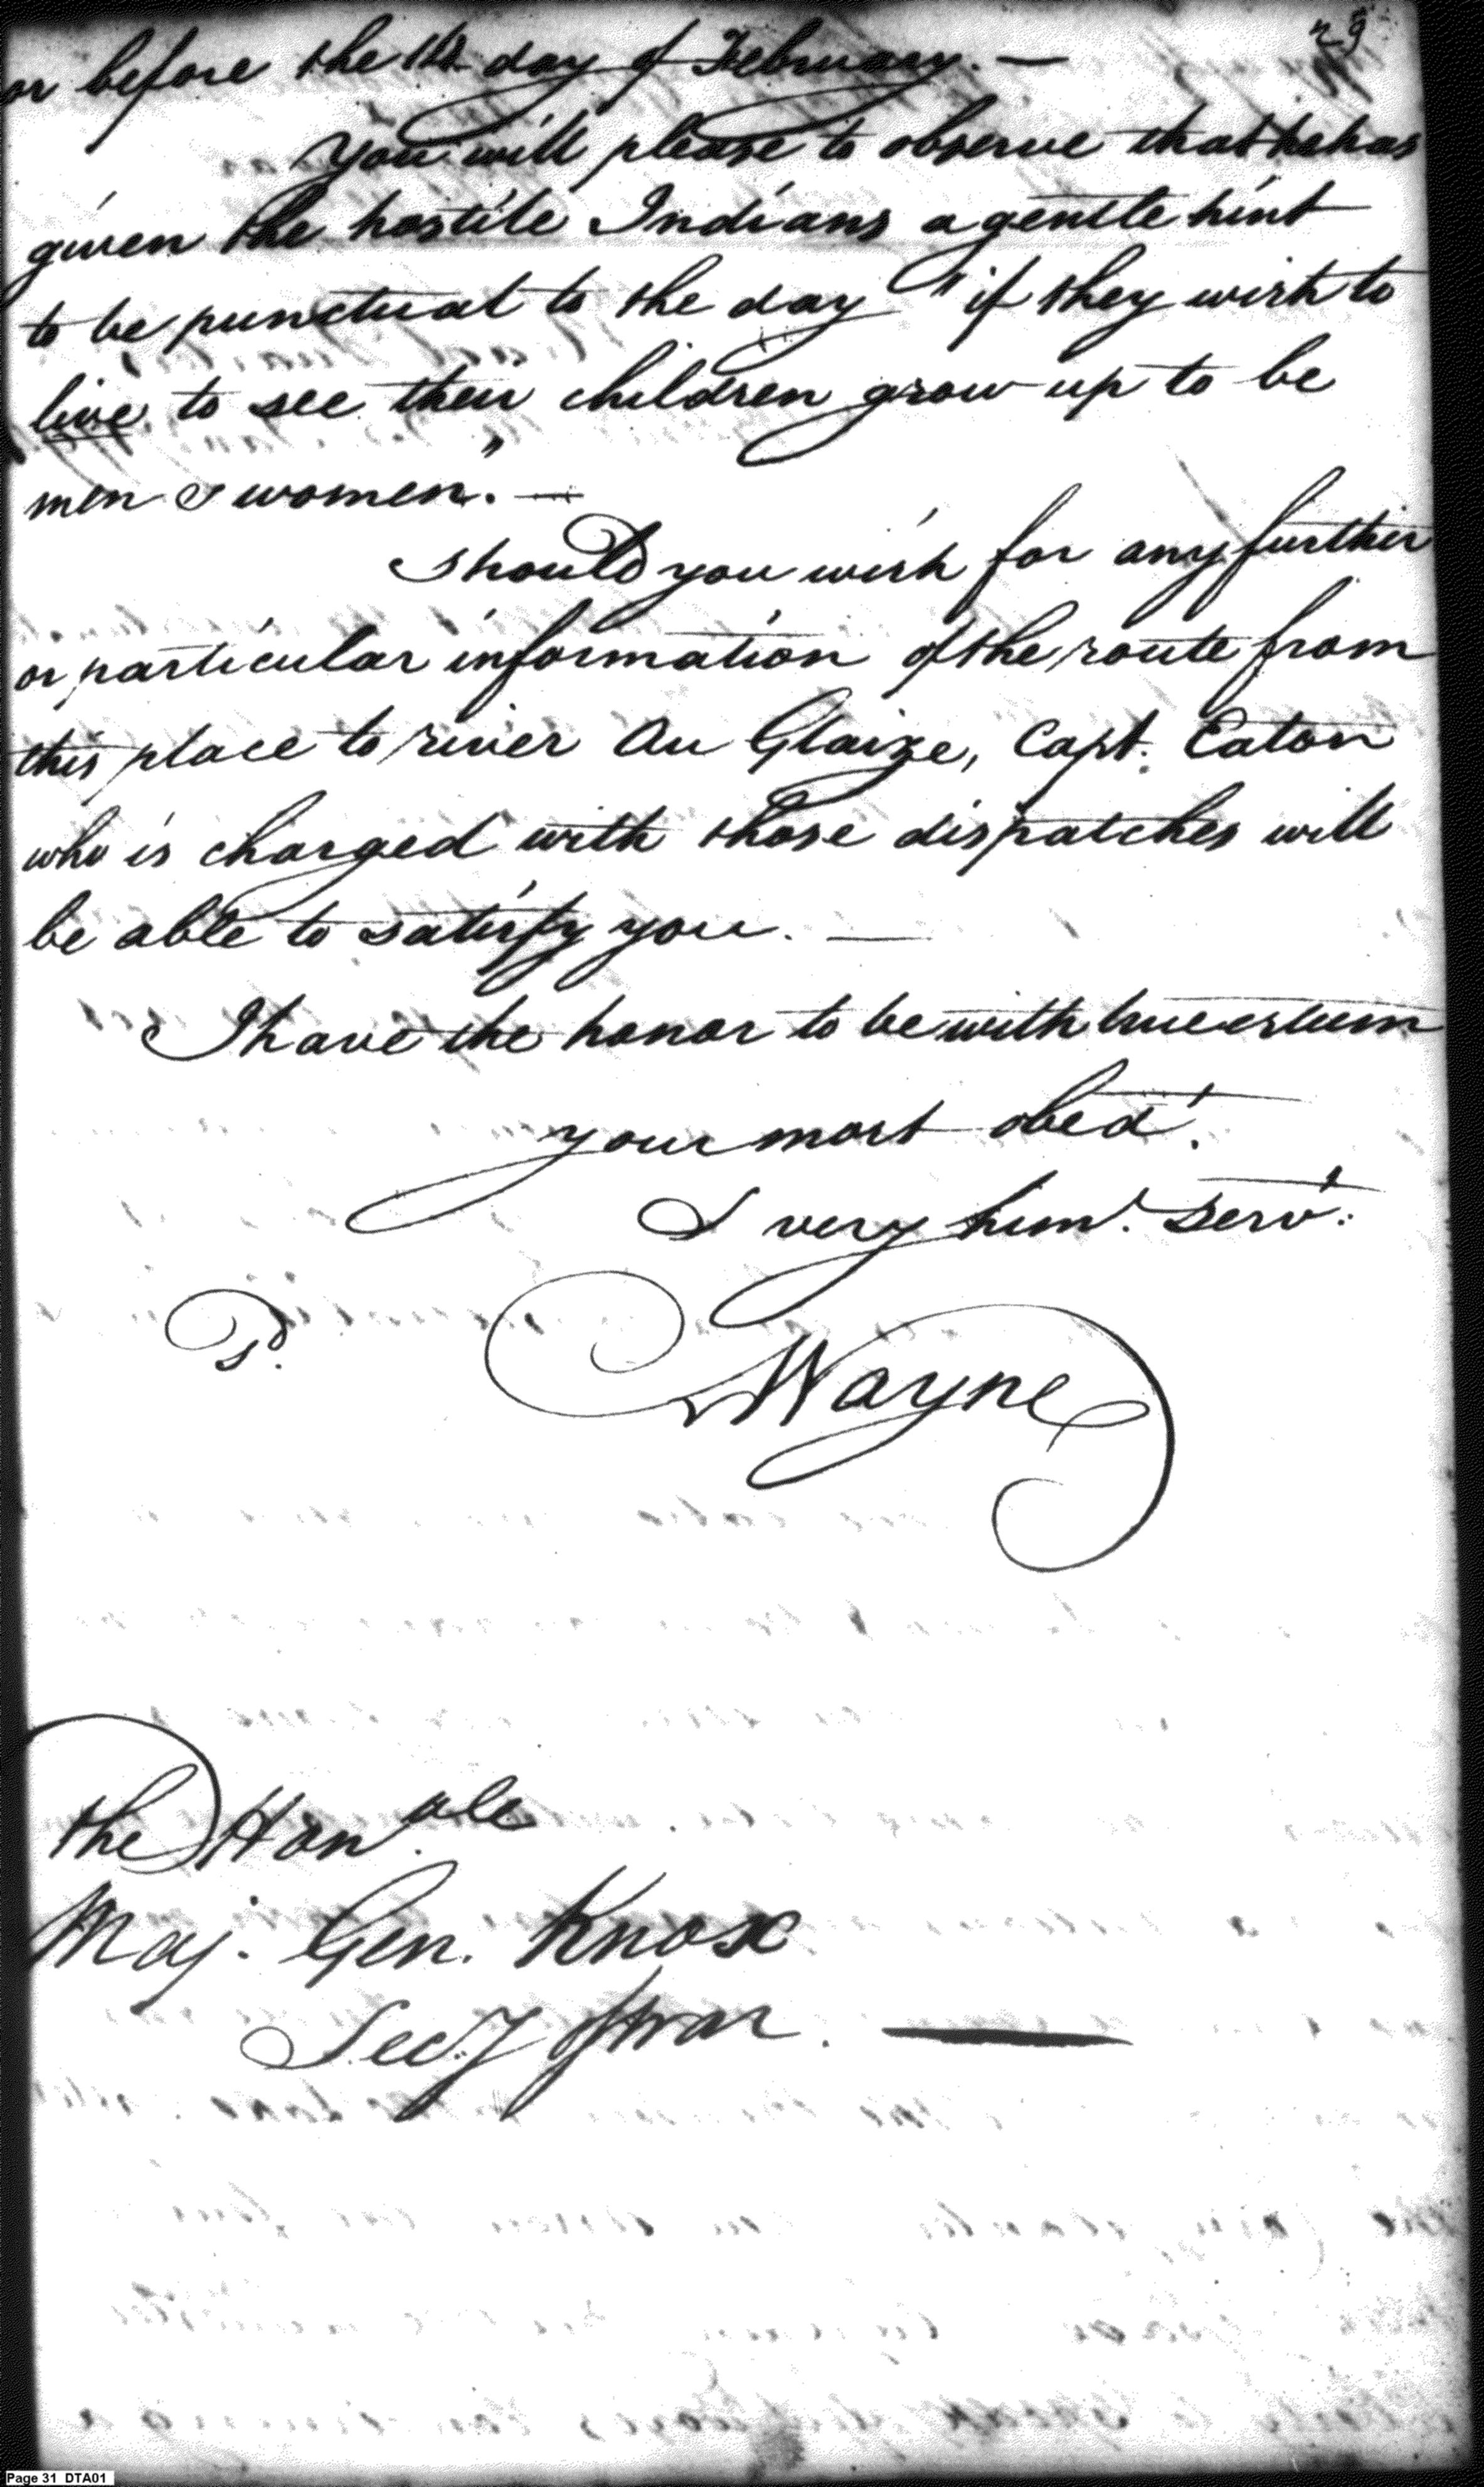 29
or before the 14th day of February. —
You will please to observe that he has
given the hostile Indians a gentle hint
to be punctual to the day "if they wish to
live to see their children grow up to be
men & women." —
Should you wish for any further
or particular information of the route from
this place to river Au Glaize, Capt. Eaton
who is charged with those dispatches will
be able to satisfy you. —
I have the honor to be with true esteem
your most obedt.
& very huml. servt.
Wayne
The Honble
Maj. Gen. Knox
Secy of War. —
Page 31 DTA01